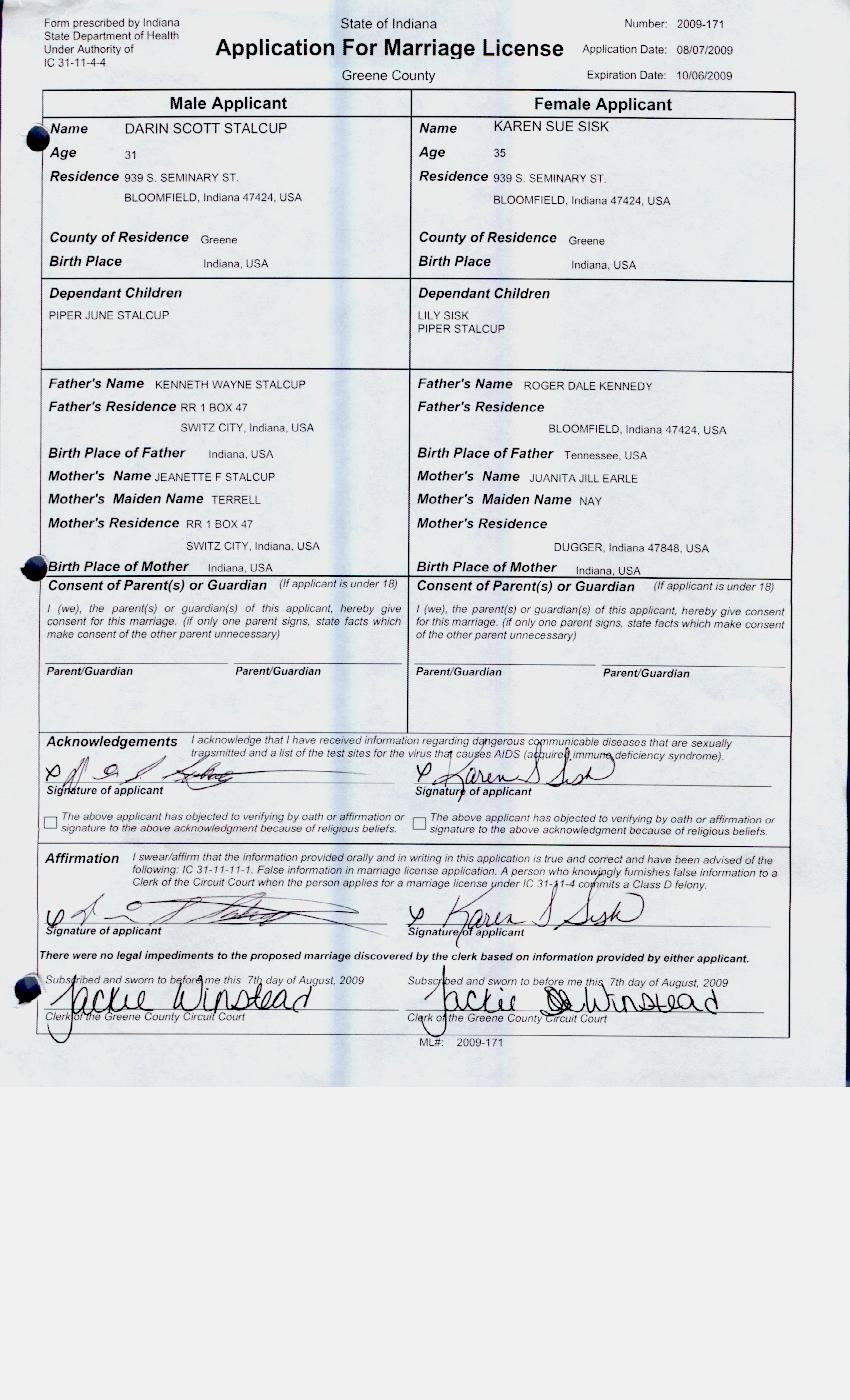 Form prescribed by Indiana
State Department of Health
Under Authority of
IC 31-11-4-4
State of Indiana
Application For Marriage License
Greene County
Number: 2009-171
Application Date: 08/07/2009
Expiration Date: 10/06/2009
Male Applicant
Name DARIN SCOTT STALCUP
Age 31
Residence 939 S. SEMINARY ST.
BLOOMFIELD, Indiana 47424, USA
County of Residence Greene
Birth Place Indiana, USA
Dependant Children
PIPER JUNE STALCUP
Father's Name KENNETH WAYNE STALCUP
Father's Residence RR 1 BOX 47
SWITZ CITY, Indiana, USA
Birth Place of Father Indiana, USA
Mother's Name JEANETTE F STALCUP
Mother's Maiden Name TERRELL
Mother's Residence RR 1 BOX 47
SWITZ CITY, Indiana, USA
Birth Place of Mother Indiana, USA
Consent of Parent(s) or Guardian (If applicant is under 18)
I (we), the parent(s) or guardian(s) of this applicant, hereby give
consent for this marriage. (if only one parent signs, state facts which
make consent of the other parent unnecessary)
Parent/Guardian Parent/Guardian
Female Applicant
Name KAREN SUE SISK
Age 35
Residence 939 S. SEMINARY ST.
BLOOMFIELD, Indiana 47424, USA
County of Residence Greene
Birth Place Indiana, USA
Dependant Children
LILY SISK
PIPER STALCUP
Father's Name ROGER DALE KENNEDY
Father's Residence
BLOOMFIELD, Indiana 47424, USA
Birth Place of Father Tennessee, USA
Mother's Name JUANITA JILL EARLE
Mother's Maiden Name NAY
Mother's Residence
DUGGER, Indiana 47848, USA
Birth Place of Mother Indiana, USA
Consent of Parent(s) or Guardian (If applicant is under 18)
I (we), the parent(s) or guardian(s) of this applicant, hereby give consent
for this marriage. (if only one parent signs, state facts which make consent
of the other parent unnecessary)
Parent/Guardian Parent/Guardian
Acknowledgements I acknowledge that I have received information regarding dangerous communicable diseases that are sexually
transmitted and a list of the test sites for the virus that causes AIDS (acquired immune deficiency syndrome).
Karen S Sisk
Signature of applicant Signature of applicant
The above applicant has objected to verifying by oath or affirmation or
signature to the above acknowledgment because of religious beliefs.
The above applicant has objected to verifying by oath or affirmation or
signature to the above acknowledgment because of religious beliefs.
Affirmation I swear/affirm that the information provided orally and in writing in this application is true and correct and have been advised of the
following: IC 31-11-11-1. False information in marriage license application. A person who knowingly furnishes false information to a
Clerk of the Circuit Court when the person applies for a marriage license under IC 31-11-4 commits a Class D felony.
Karen S Sisk
Signature of applicant Signature of applicant
There were no legal impediments to the proposed marriage discovered by the clerk based on information provided by either applicant.
Subscribed and sworn to before me this 7th day of August, 2009
Jackie Winstead
Clerk of the Greene County Circuit Court
Subscribed and sworn to before me this 7th day of August, 2009
Jackie Winstead
Clerk of the Greene County Circuit Court
ML#: 2009-171